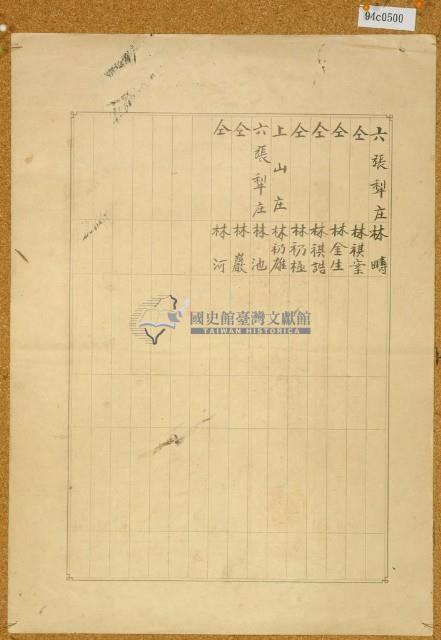 94c0500
六張犁庄 林疇
仝 林祺業
仝 林金生
仝 林祺諧
仝 林礽極
上山庄 林礽雄
六張犁庄 林池
仝 林巖
仝 林河
國史館臺灣文獻館
TAIWAN HISTORICA